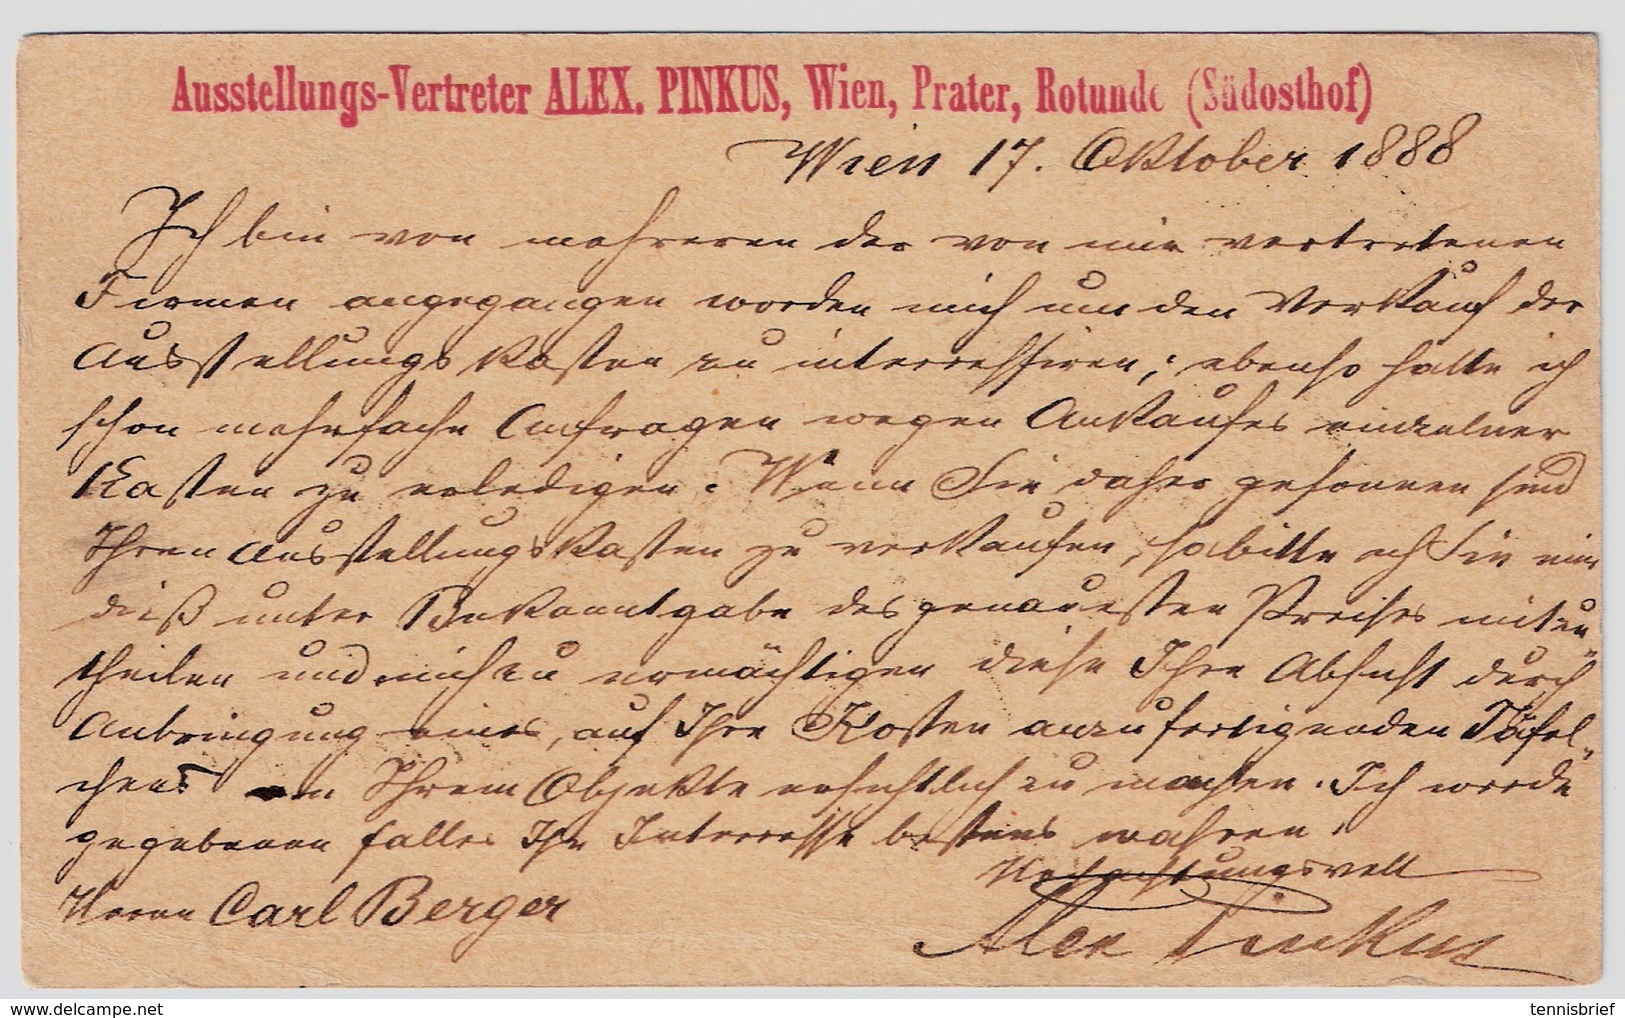 Ausstellungs-Vertreter ALEX. PINKUS, Wien, Prater, Rotunde (Südosthof)
Wien 17. Oktober 1888
Ich bin von mehreren der von mir vertretenen
Firmen angegangen worden mich um den Verkauf der
Ausstellungskasten zu interressiren; ebenso hatte ich
schon mehrfache Anfragen wegen Ankaufes einzelner
Kasten zu erledigen. Wenn Sie daher gesonnen sind
Ihren Ausstellungskasten zu verkaufen, so bitte ich Sie mir
dieß unter Bekanntgabe des genauesten Preises mitzu-
theilen und mich zu ermächtigen diese Ihre Absicht durch
Anbringung eines, auf Ihre Kosten anzufertigenden Täfel-
chens an Ihrem Objekte ersichtlich zu machen. Ich werde
gegebenen falles Ihr Interresse bestens wahren.
Hochachtungsvoll
Herrn Carl Berger
Alex Pinkus
tennisbrief